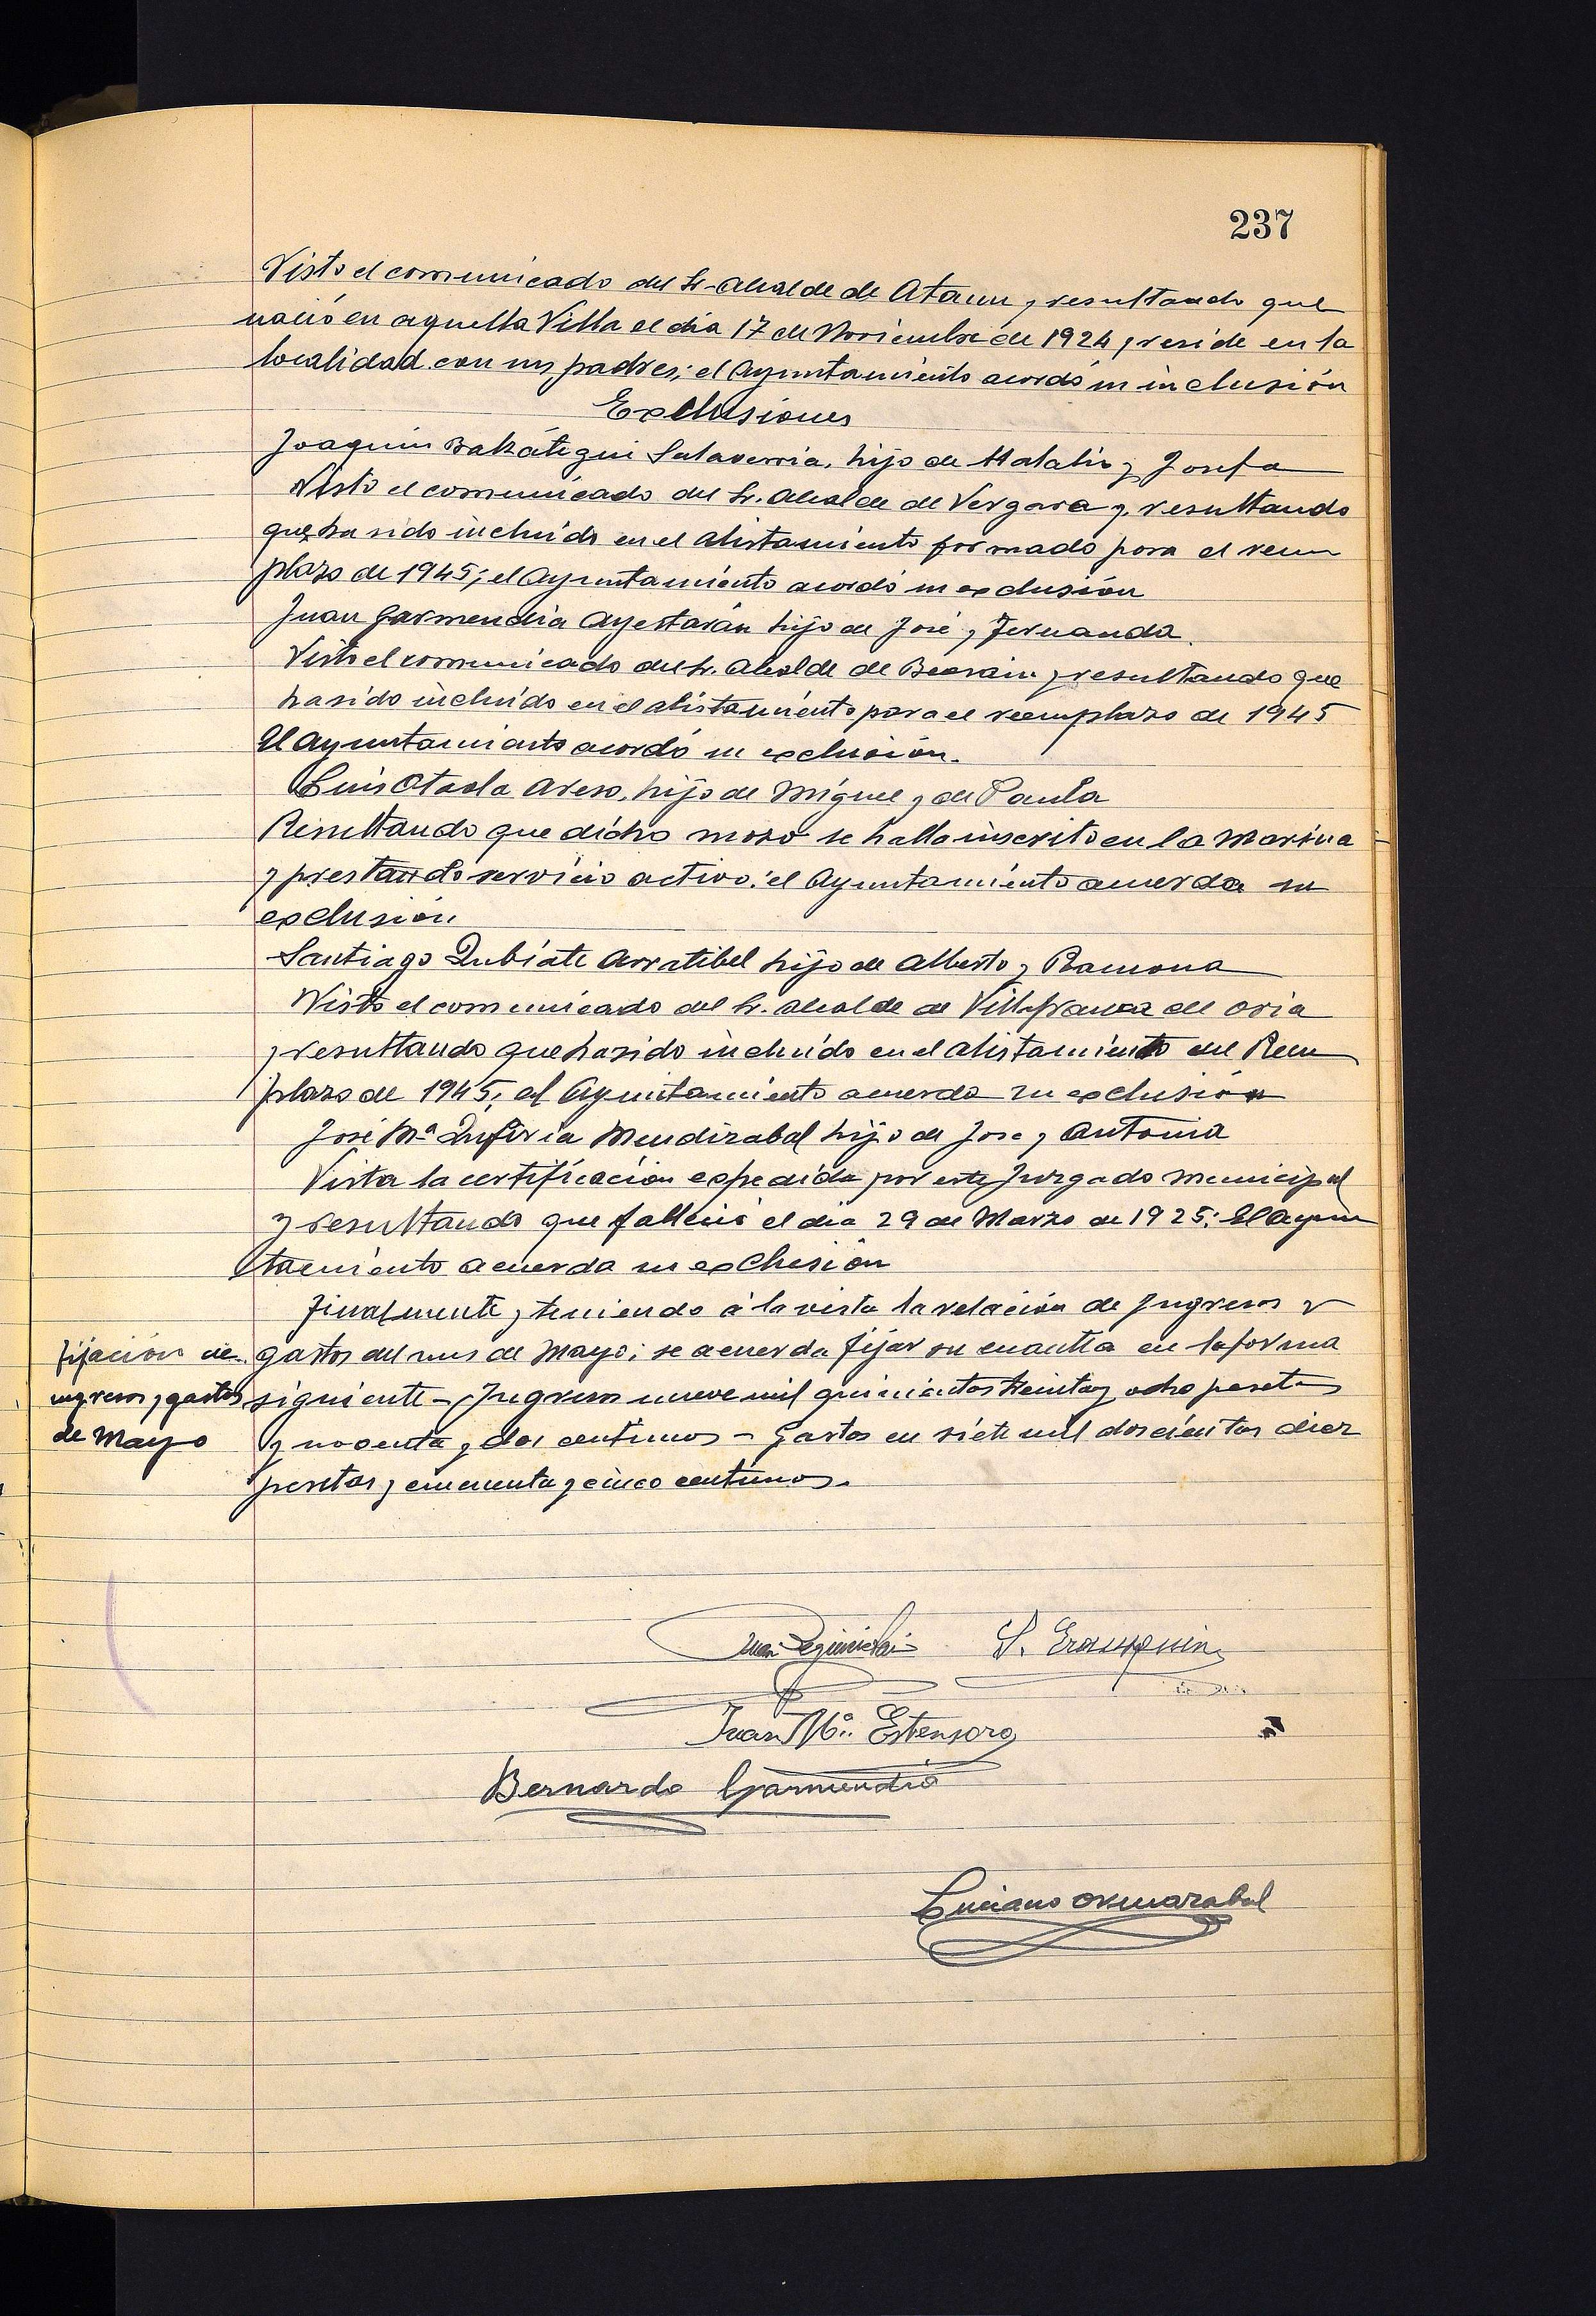 237
Visto el comunicado del Sr. Alcalde de Ataun y resultando que
nació en aquella Villa el dia 17 de Noviembre de 1924 y reside en la
localidad con sus padres; el Ayuntamiento acordó su inclusión
Exclusiones
Joaquin Salaverria, hijo de y Josefa
Visto el comunicado del Sr. Alcalde de Vergara y resultando
que ha sido incluído en el alistamiento formado para el reem
plazo de 1945; el Ayuntamiento acordó su exclusión
Juan Garmendia Ayestarán hijo de José y Fernanda.
Visto el comunicado del Sr. Alcalde de Beasain y resultando que
ha sido incluído en el alistamiento para el reemplazo de 1945
El Ayuntamiento acordó su exclusión.
Luis Otaola Areso, hijo de Miguel y de Paula
Resultando que dicho mozo se halla inscrito en la Marina
y prestando servicio activo: el Ayuntamiento acuerda su
exclusión
Santiago Arratibel hijo de Alberto y Ramona
Visto el comunicado del Sr. Alcalde de Villafranca de Oria
y resultando que ha sido incluído en el alistamiento del Reem
plazo de 1945; el Ayuntamiento acuerda su exclusión
José Mª Mendizabal hijo de Jose y Antonia
Vista la certificación expedida por este Juzgado Municipal
y resultando que falleció el dia 29 de Marzo de 1925: El Ayun
tamiento acuerda su exclusión
Finalmente y teniendo á la vista la relación de Ingresos y
fijación de
ingresos y gastos
de Mayo
gastos del mes de Mayo; se acuerda fijar su cuantia en la forma
siguiente – Ingresos nueve mil quinientos treinta y ocho pesetas
y noventa y dos centimos – Gastos en siete mil doscientas diez
pesetas y cincuenta y cinco centimos.
Juan
Juan Mª. Estensoro
Bernardo Garmendia
Luciano